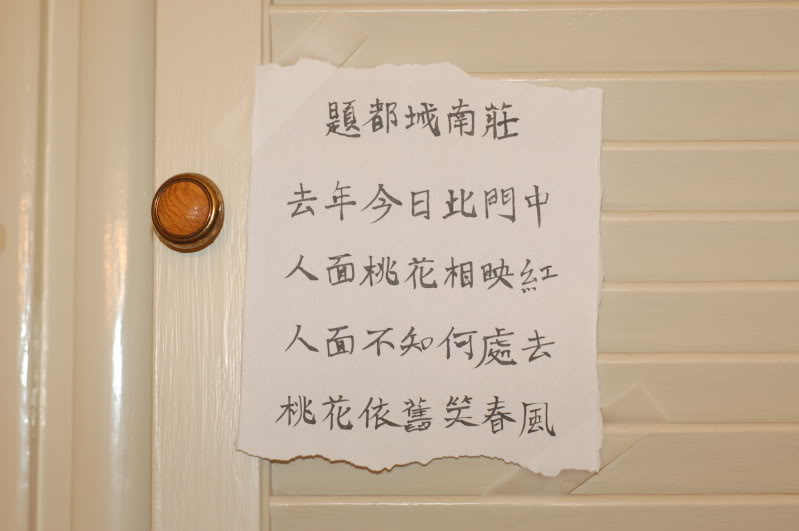 題都城南莊
去年今日此門中
人面桃花相映紅
人面不知何處去
桃花依舊笑春風